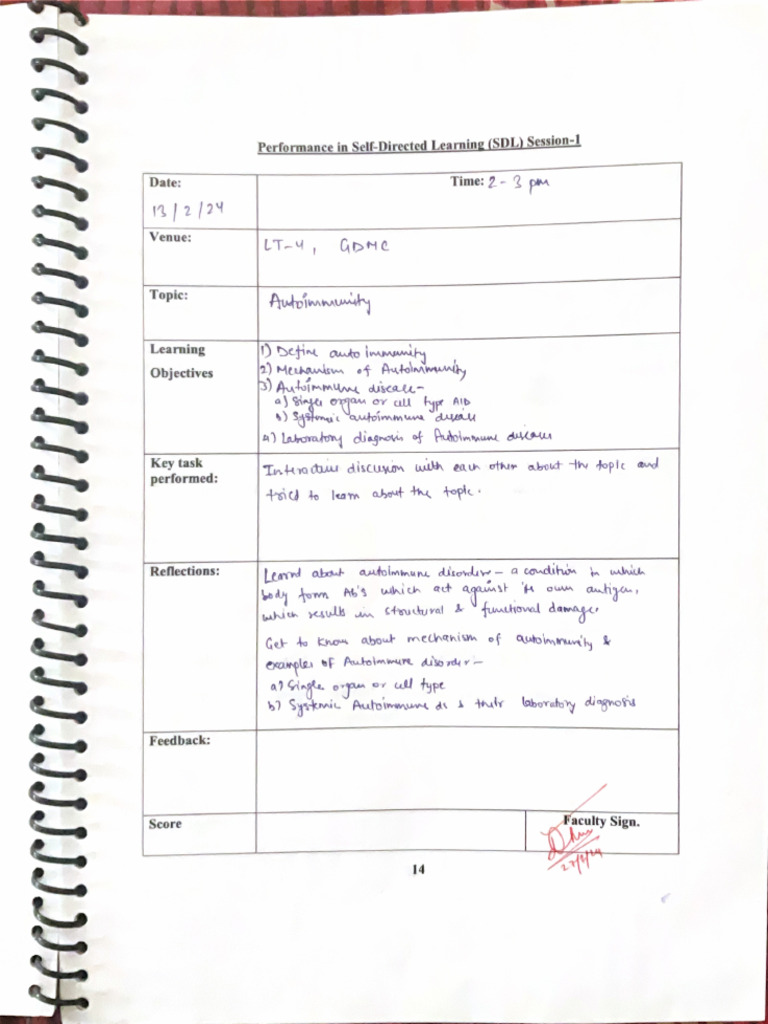 Performance in Self-Directed Learning (SDL) Session-1
Date:
13/2/24
Time: 2-3 pm
Venue:
LT-4, GDMC
Topic:
Autoimmunity
Learning
Objectives
1) Define auto immunity
2) Mechanism of Autoimmunity
3) Autoimmune disease-
a) Single organ or cell type AID
b) Systemic autoimmune disease
4) Laboratory diagnosis of Autoimmune diseases
Key task
performed:
Interactive discussion with each other about the topic and
tried to learn about the topic.
Reflections:
Learnd about autoimmune disorder - a condition in which
body form Ab's which act against its own antigen,
which results in structural & functional damage.
Get to know about mechanism of autoimmunity &
examples of Autoimmune disorder-
a) Single organ or cell type
b) Systemic Autoimmune ds & their laboratory diagnosis
Feedback:
Score
Faculty Sign.
14